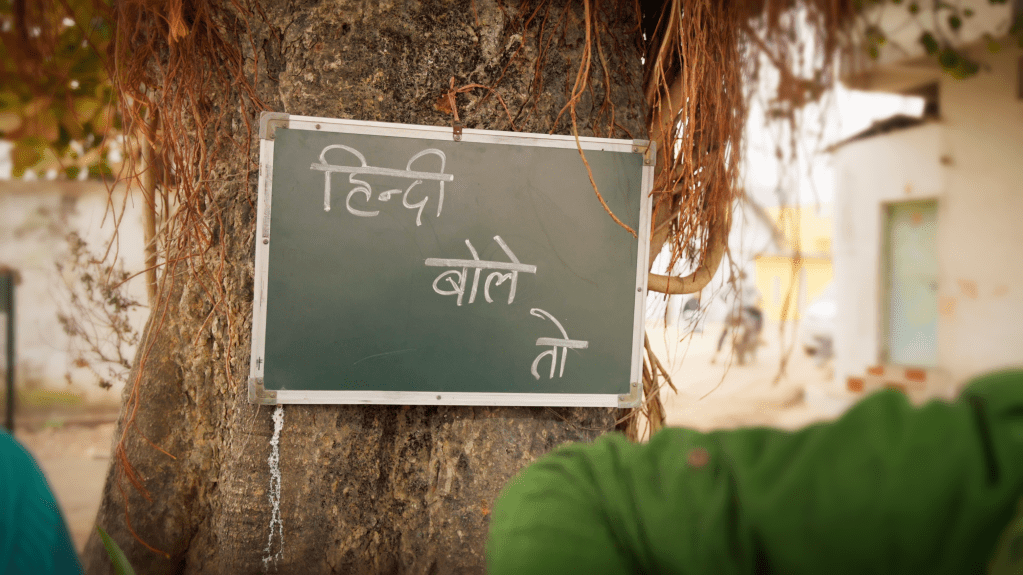 हिन्दी
बोले
तो